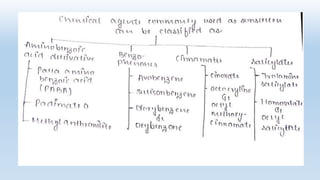 Chemical agents commonly used as sunscreen
can be classified as
Aminobenzoic
acid derivative
- Para amino
benzoic acid
(PABA)
- Padimate O
- Methyl anthranilate
Benzo-
phenones
- Avobenzene
- Sulisonbenzene
- Oxybenzene
or
Oxybenzone
Cinnamate
- cinoxate
- octocrylene
or
octyl
methoxy-
cinnamate
Salicylate
- Trolamine
salicylate
- Homosalate
or
octyl
salicylate